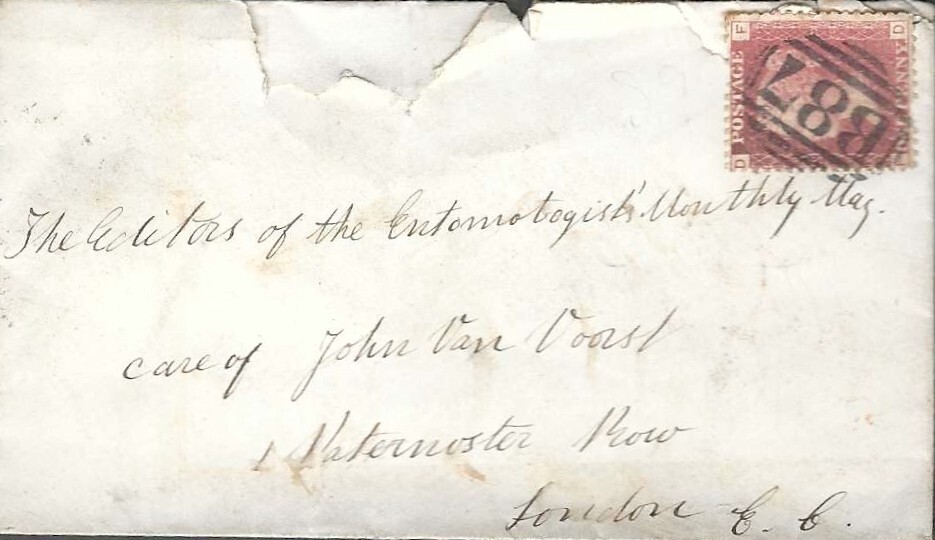 F D
POSTAGE
PENNY
D
B87
The Editors of the Entomologists' Monthly Mag.
care of John Van Voorst
1 Paternoster Row
London E. C.